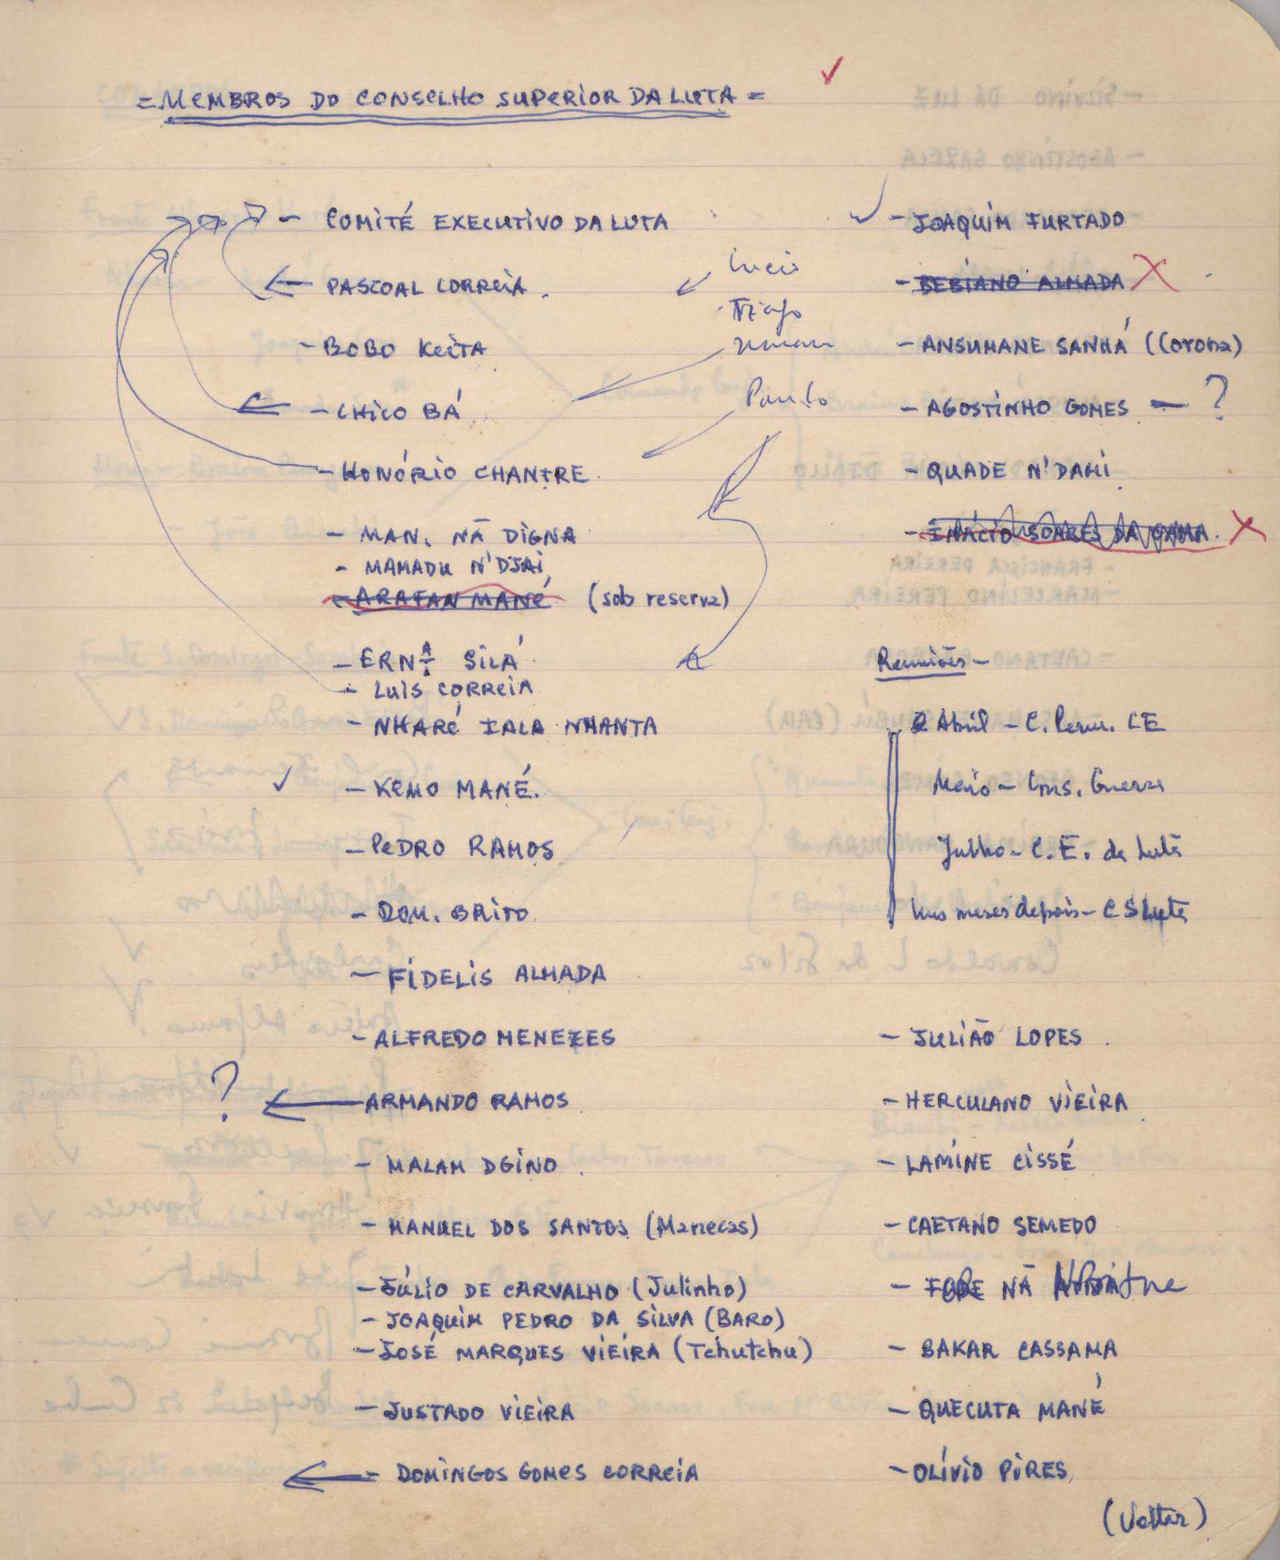 = MEMBROS DO CONSELHO SUPERIOR DA LUTA =
- COMITÉ EXECUTIVO DA LUTA
PASCOAL CORREIA.
- BOBO KEITA
- CHICO BÁ
- HONÓRIO CHANTRE
- MAN. NÃ DIGNA
- MAMADU N'DJAI
- ARAFAN MANÉ (sob reserva)
- ERNA SILÁ
- LUIS CORREIA
- NHARÉ IALA NHANTA
- KEMO MANÉ.
- PEDRO RAMOS
- DOM. BRITO
- FIDELIS ALMADA
- ALFREDO MENEZES
? ARMANDO RAMOS
- MALAM DGINO
- MANUEL DOS SANTOS (Manecas)
- JÚLIO DE CARVALHO (Julinho)
- JOAQUIM PEDRO DA SILVA (BARO)
- JOSÉ MARQUES VIEIRA (Tchutchu)
- JUSTADO VIEIRA
- DOMINGOS GOMES CORREIA
Lucio
Tiago
Paulo
- JOAQUIM FURTADO
- BEBIANO ALMADA
- ANSUMANE SANHÁ (Corona)
- AGOSTINHO GOMES - ?
- QUADE N'DAMI
- INÁCIO SOARES DA GAMA.
Reuniões -
2 Abril - C. Perm. CE
Maio - Cons. Guerra
Julho - C.E. da Luta
meses depois - C S Luta
- JULIÃO LOPES
- HERCULANO VIEIRA
- LAMINE CISSÉ
- CAETANO SEMEDO
- NÃ
- BAKAR CASSAMA
- QUECUTA MANÉ
- OLÍVIO PIRES
(Voltar)